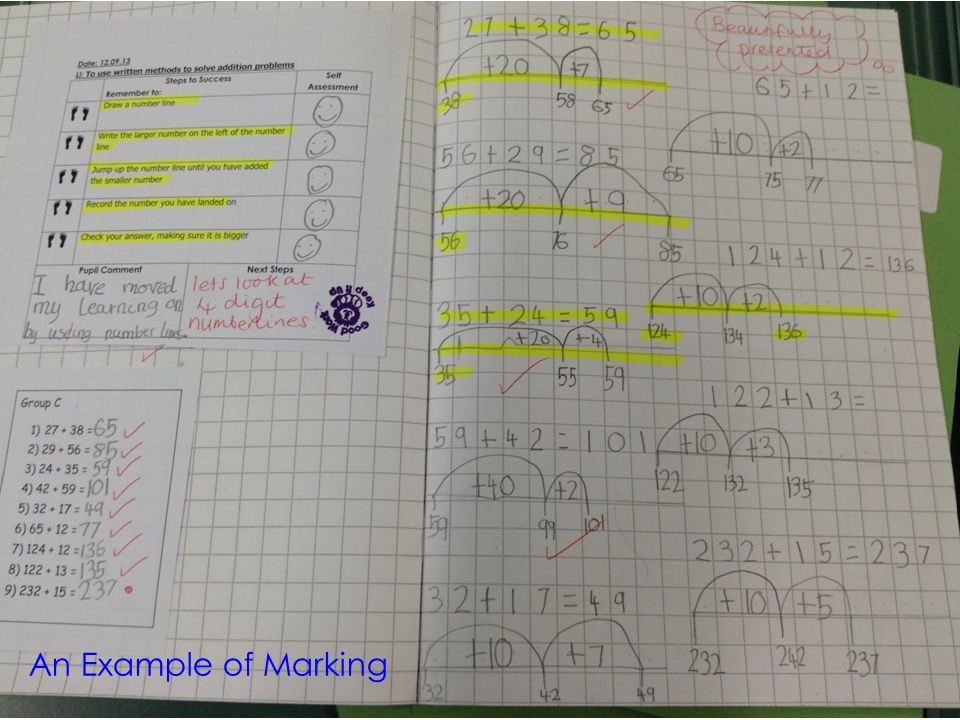 Date: 12.09.13
LI: To use written methods to solve addition problems
Steps to Success
Self Assessment
Remember to:
Draw a number line
Write the larger number on the left of the number line
Jump up the number line until you have added the smaller number
Record the number you have landed on
Check your answer, making sure it is bigger
Pupil Comment
I have moved
my learning on
by using number lines.
Next Steps
lets look at
4 digit
numberlines.
Good Work
Keep it up
Group C
1) 27 + 38 = 65
2) 29 + 56 = 85
3) 24 + 35 = 59
4) 42 + 59 = 101
5) 32 + 17 = 49
6) 65 + 12 = 77
7) 124 + 12 = 136
8) 122 + 13 = 135
9) 232 + 15 = 237
An Example of Marking
27+38=65
+20 +7
38 58 65
56+29=85
+20 +9
56 76 85
35+24=59
+20 +4
35 55 59
59+42=101
+40 +2
59 99 101
32+17=49
+10 +7
32 42 49
Beautifully
presented
65+12=
+10 +2
65 75 77
124+12=136
+10 +2
124 134 136
122+13=
+10 +3
122 132 135
232+15=237
+10 +5
232 242 237